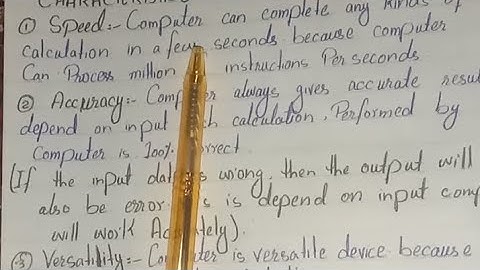 ① Speed:- Computer can complete any kinds of
calculation in a few seconds because computer
Can Process million instructions Per seconds
② Accuracy:- always gives accurate
depend on input calculation. Performed by
Computer is 100% correct
(If the input wrong, then the output will
also be error is depend on input
will work
③ Versatility:- is versatile device because